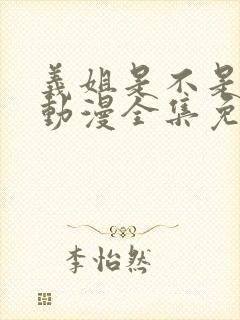 義姐是不是
動漫全集免
李怡然